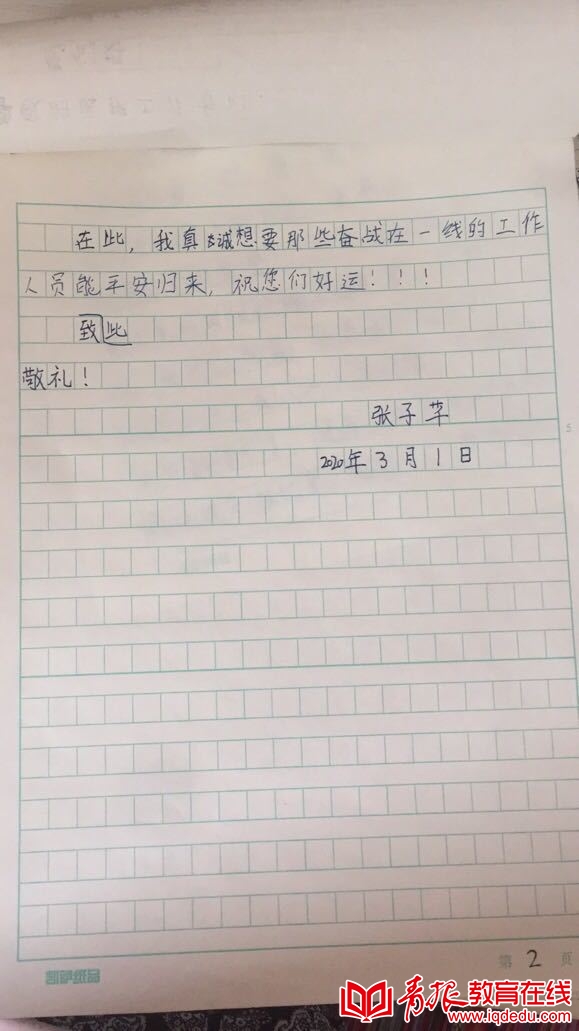 在此，我真诚想要那些奋战在一线的工作
人员能平安归来，祝您们好运！！！
致此
敬礼！
张子芊
2020年3月1日
5
第2页
青报教育在线
www.iqdedu.com